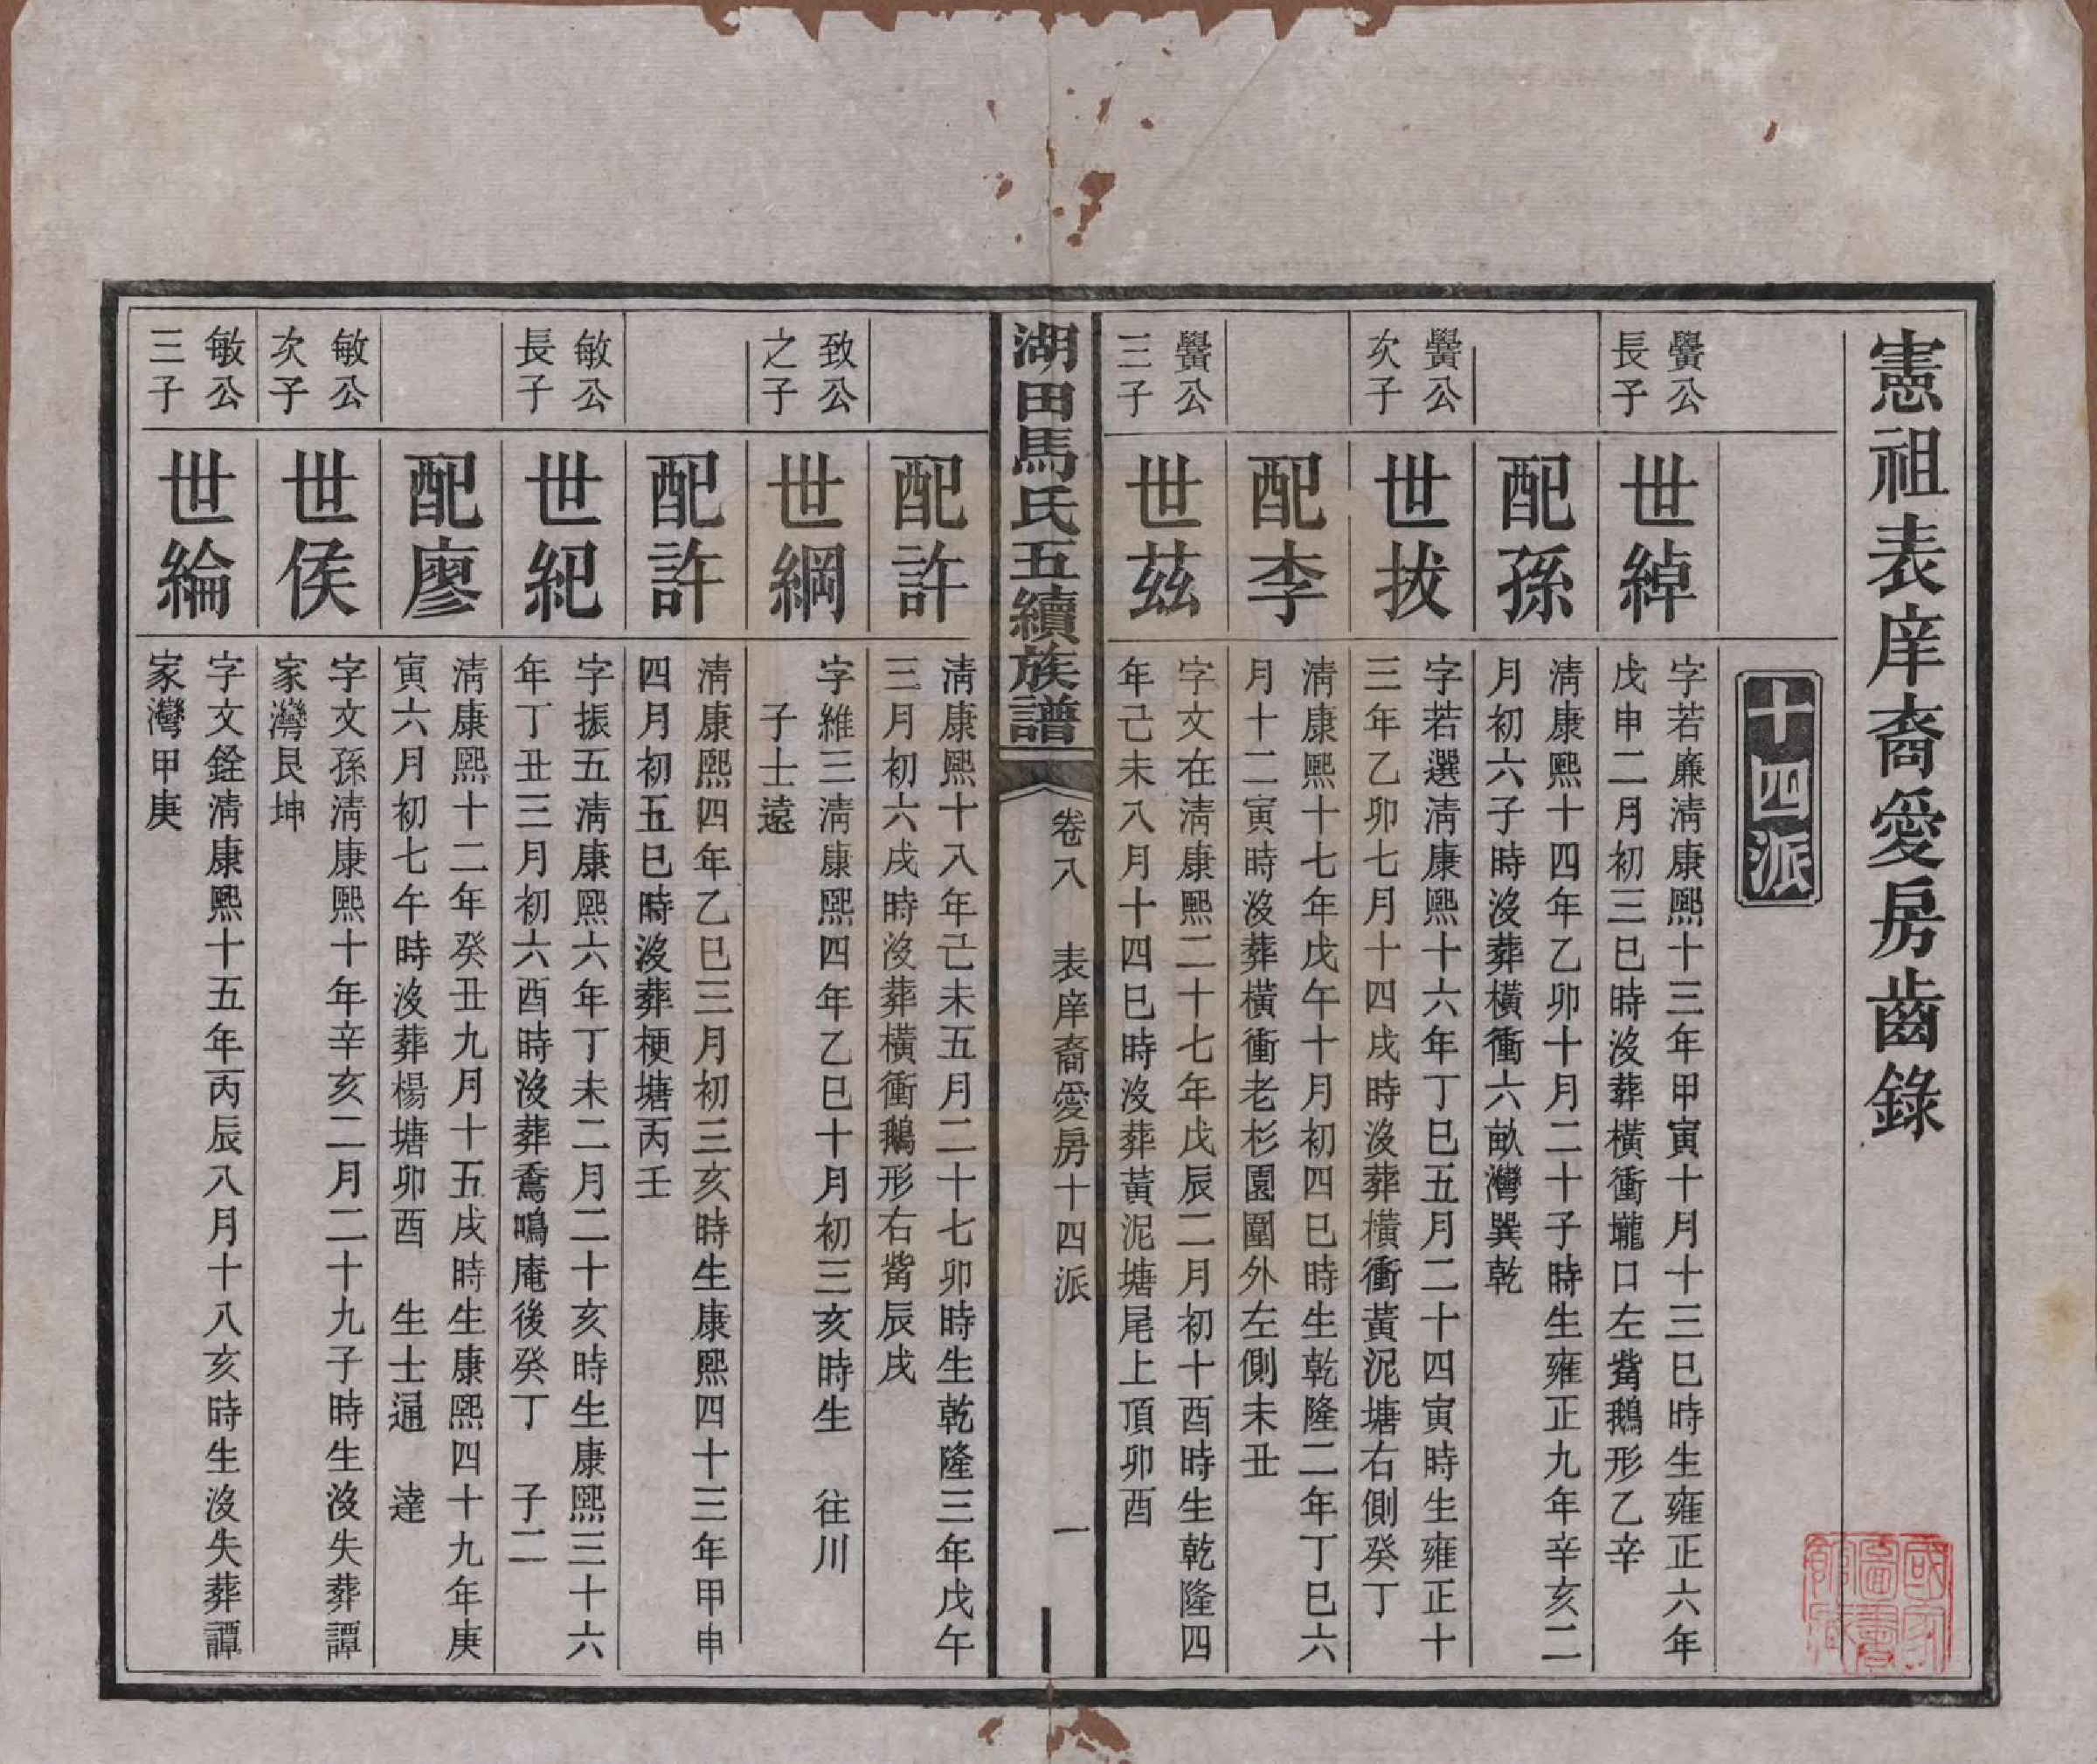 憲祖表庠裔愛房齒錄
十四派
黌公
長子
世綽
字若廉淸康熙十三年甲寅十月十三巳時生雍正六年
戊申二月初三巳時沒葬橫衝壠口左觜鵝形乙辛
配孫
淸康熙十四年乙卯十月二十子時生雍正九年辛亥二
月初六子時沒葬橫衝六畝灣巽乾
黌公
次子
世拔
字若選淸康熙十六年丁巳五月二十四寅時生雍正十
三年乙卯七月十四戌時沒葬橫衝黃泥塘右側癸丁
配李
淸康熙十七年戊午十月初四巳時生乾隆二年丁巳六
月十二寅時沒葬橫衝老杉園圍外左側未丑
黌公
三子
世茲
字文在淸康熙二十七年戊辰二月初十酉時生乾隆四
年己未八月十四巳時沒葬黃泥塘尾上頂卯酉
湖田馬氏五續族譜
卷八 表庠裔愛房十四派 一
配許
淸康熙十八年己未五月二十七卯時生乾隆三年戊午
三月初六戌時沒葬橫衝鵝形右觜辰戌
致公
之子
世綱
字維三淸康熙四年乙巳十月初三亥時生 往川
子士遠
配許
淸康熙四年乙巳三月初三亥時生康熙四十三年甲申
四月初五巳時沒葬梗塘丙壬
敏公
長子
世紀
字振五淸康熙六年丁未二月二十亥時生康熙三十六
年丁丑三月初六酉時沒葬喬鳴庵後癸丁 子二
配廖
淸康熙十二年癸丑九月十五戌時生康熙四十九年庚
寅六月初七午時沒葬楊塘卯酉 生士逼 達
敏公
次子
世侯
字文孫淸康熙十年辛亥二月二十九子時生沒失葬譚
家灣艮坤
敏公
三子
世綸
字文銓淸康熙十五年丙辰八月十八亥時生沒失葬譚
家灣甲庚
國家圖書館藏